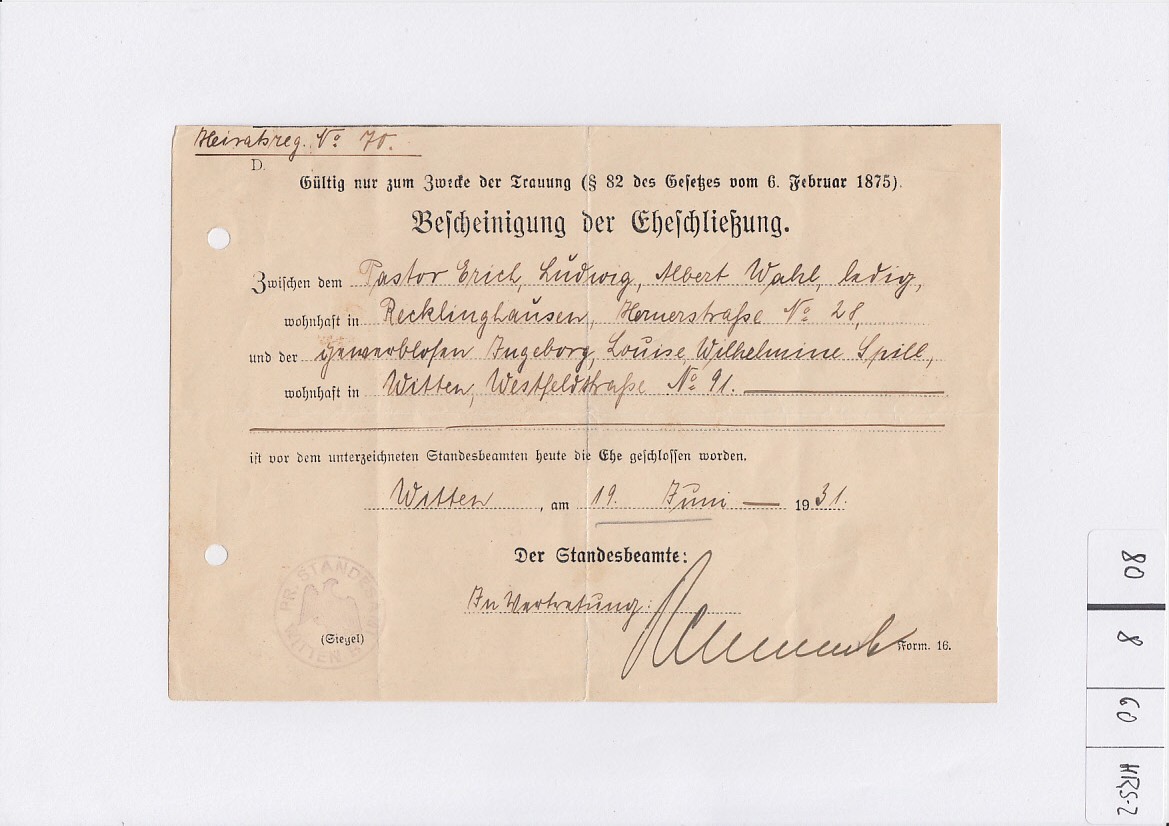 Heiratsreg. No 70.
D.
Gültig nur zum Zwecke der Trauung (§ 82 des Gesetzes vom 6. Februar 1875).
Bescheinigung der Eheschließung.
Zwischen dem Pastor Erich, Ludwig, Albert Wahl, ledig,
wohnhaft in Recklinghausen, Hernerstraße No 28,
und der gewerblosen Ingeborg, Louise, Wilhelmine Spill,
wohnhaft in Witten, Westfeldstraße No 91.
ist vor dem unterzeichneten Standesbeamten heute die Ehe geschlossen worden.
Witten, am 19. Juni 1931.
Der Standesbeamte:
In Vertretung:
PR. STANDES
WITTEN
(Siegel)
Form. 16.
80
8
60